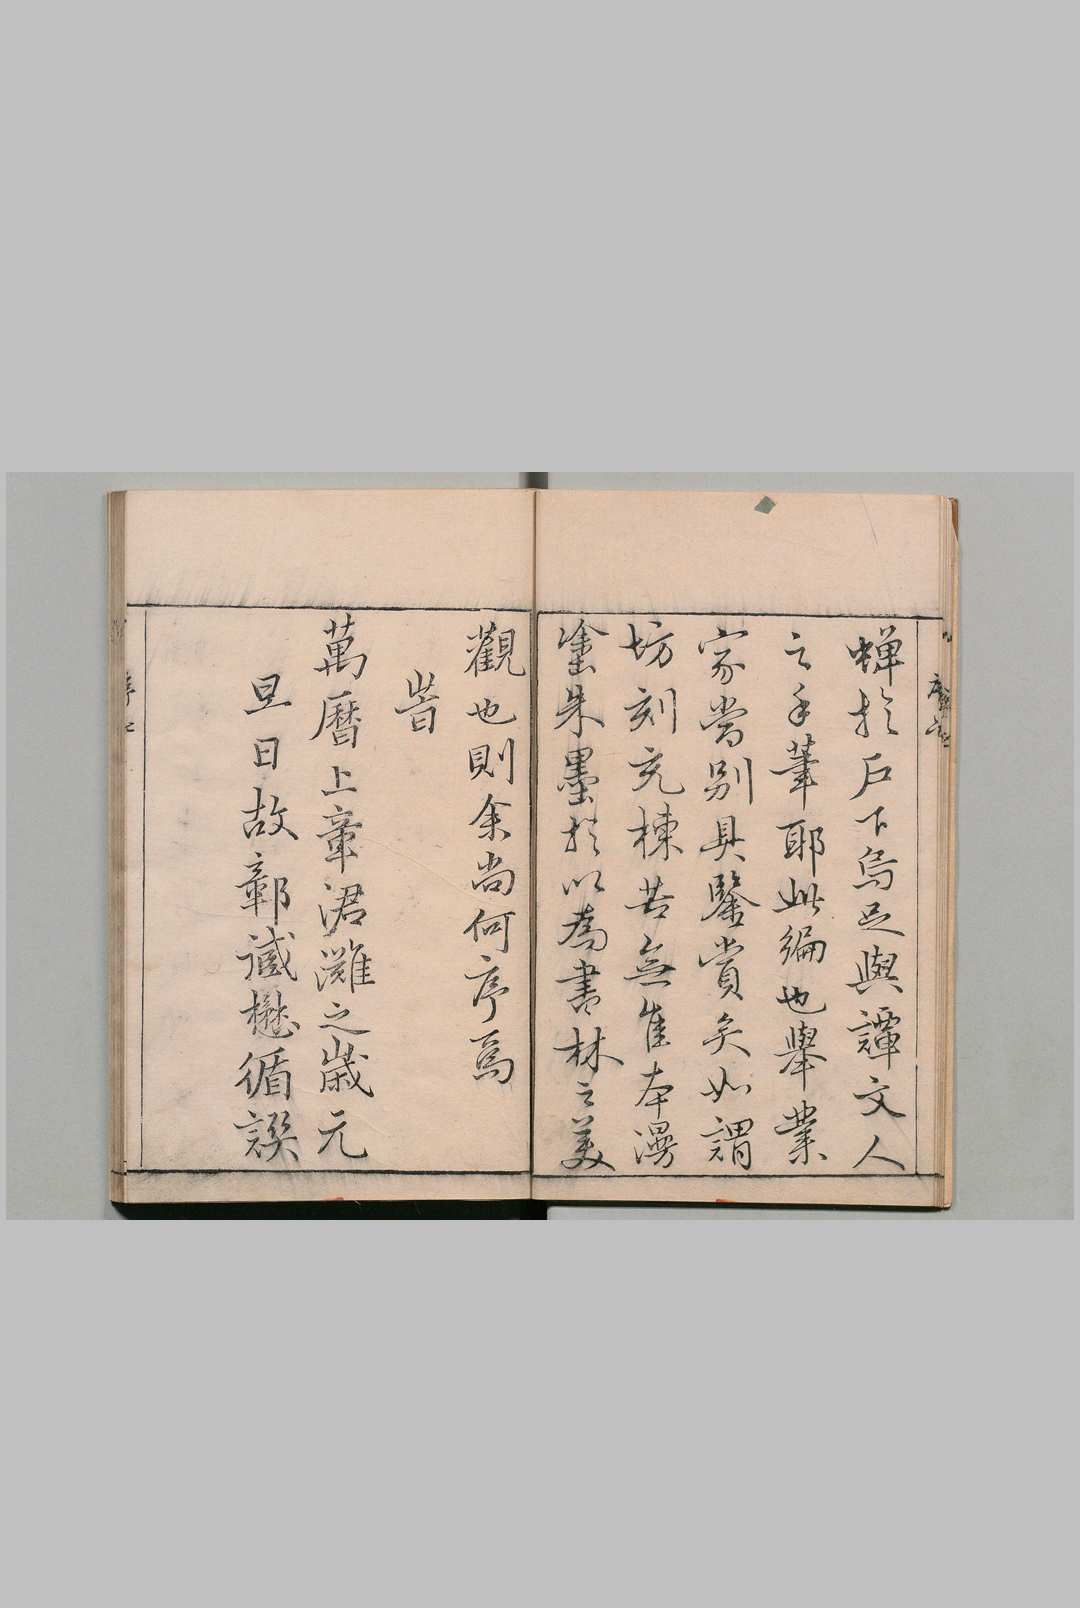 蟬於戶下烏足與譚文人
之手筆耶此編也舉業
家當別具鑒賞矣如謂
坊刻充棟苦無隹本漫
塗朱墨於以為書林之美
觀也則余尚何序焉
旹
萬曆上章涒灘之歲元
旦日故鄣臧懋循譔